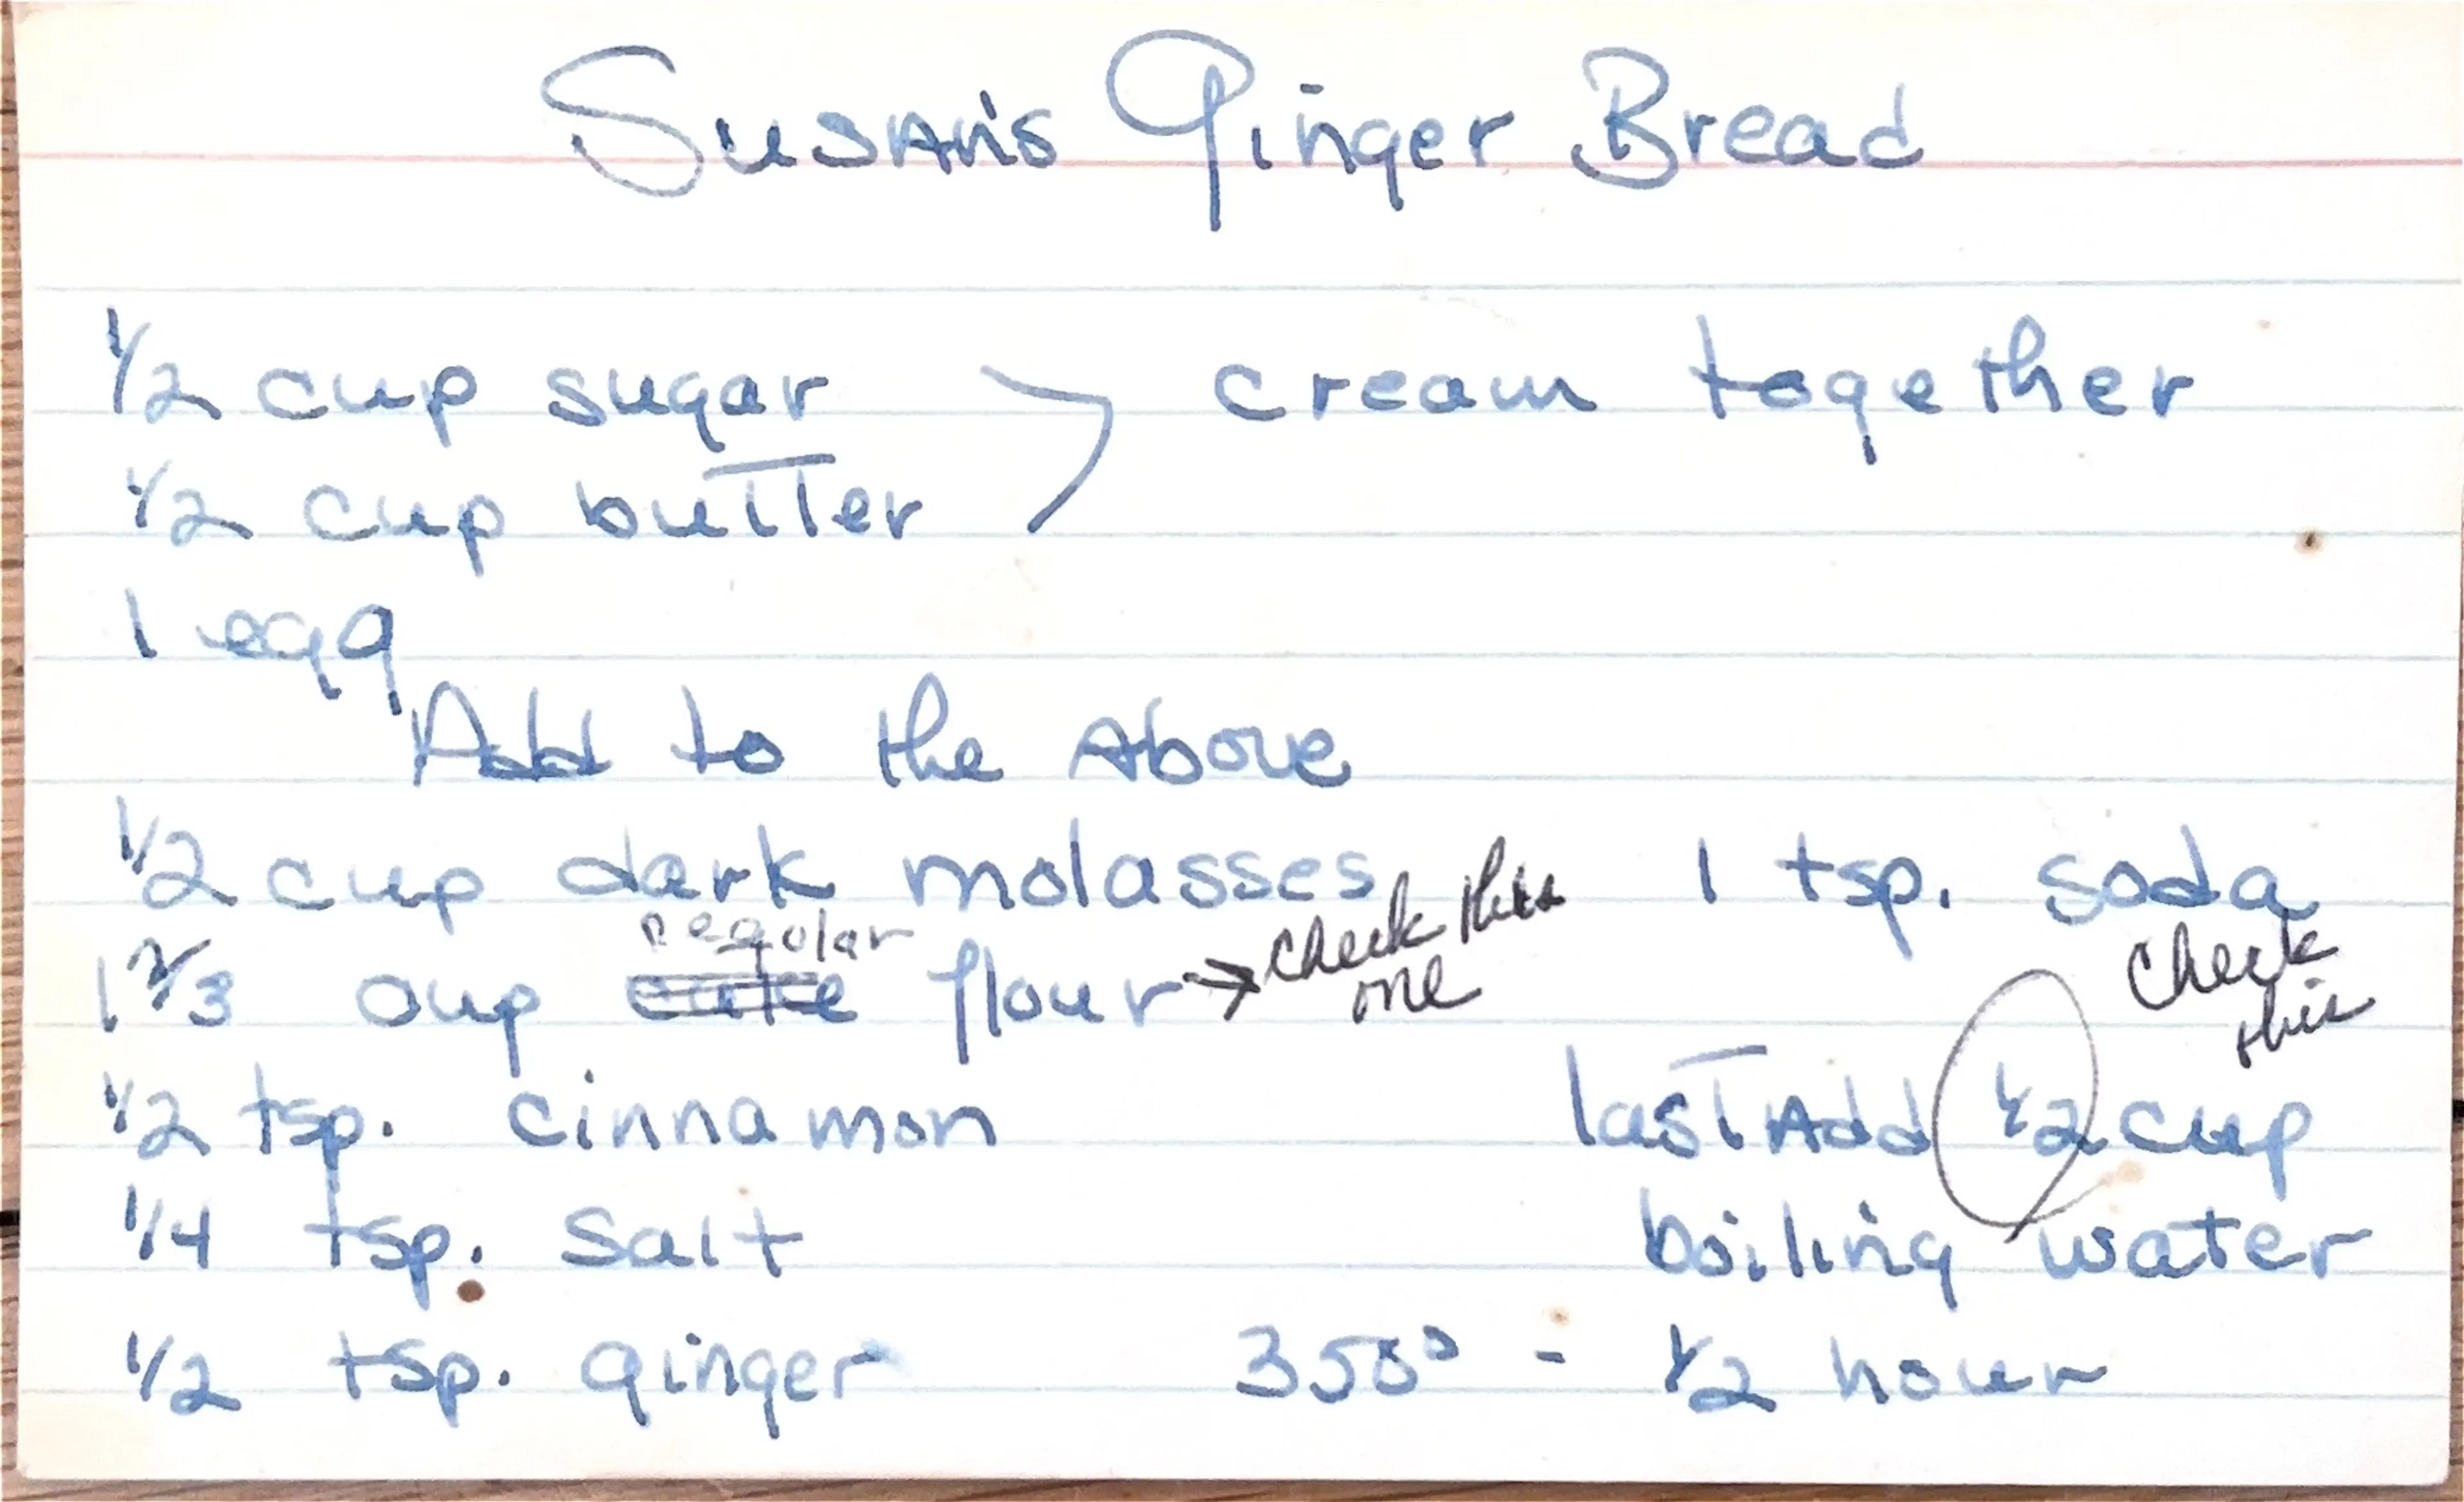 Susan's Ginger Bread
1/2 cup sugar cream together
1/2 cup butter
1 egg
Add to the above
1/2 cup dark molasses 1 tsp. soda
regular check this one
1 2/3 cup cake flour → check this
1/2 tsp. cinnamon last Add 1/2 cup
1/4 tsp. salt boiling water
1/2 tsp. ginger 350° - 1/2 hour